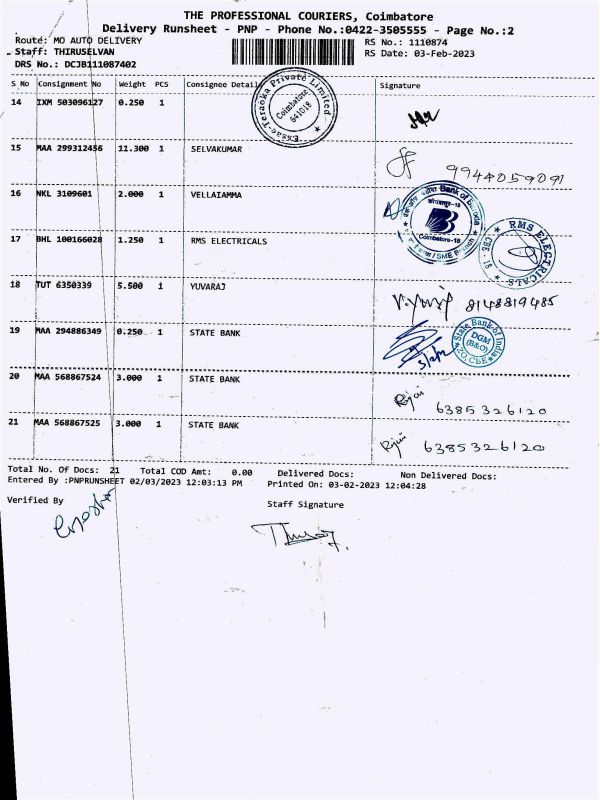 THE PROFESSIONAL COURIERS, Coimbatore
Delivery Runsheet - PNP - Phone No.:0422-3505555 - Page No.:2
Route: MO AUTO DELIVERY
RS No.: 1110874
Staff: THIRUSELVAN
RS Date: 03-Feb-2023
DRS No.: DCJB111087402
S No Consignment No Weight PCS Consignee Detail Signature
14 IXM 503096127 0.250 1
Essae-Teraoka Private Limited
Coimbatore
641018
15 MAA 299312456 11.300 1 SELVAKUMAR
9944059091
16 NKL 3109601 2.000 1 VELLAIAMMA
Bank of India
Coimbatore-18
SME
17 BHL 100166028 1.250 1 RMS ELECTRICALS
RMS ELECTRICALS
CBE - 18
18 TUT 6350339 5.500 1 YUVARAJ
8148819485
19 MAA 294886349 0.250 1 STATE BANK
State Bank of India
DGM
(B&O)
CBE
20 MAA 568867524 3.000 1 STATE BANK
6385326120
21 MAA 568867525 3.000 1 STATE BANK
6385326120
Total No. Of Docs: 21 Total COD Amt: 0.00 Delivered Docs: Non Delivered Docs:
Entered By :PNPRUNSHEET 02/03/2023 12:03:13 PM Printed On: 03-02-2023 12:04:28
Verified By
Staff Signature